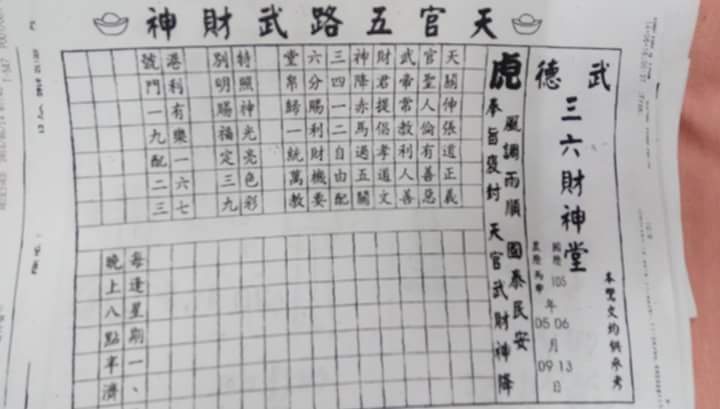 天官五路武財神
武德
三六財神堂
本鸞文均供參考
國曆105年06月13日
農曆 年05月09日
虎
風調雨順 國泰民安
奉旨褒封 天官武財神降
天關伸張道正義
官聖人倫有善惡
武帝當教利人善
財君提倡孝道文
神降赤馬過五關
三四一二自由配
六分賜利財機要
堂帛歸一統萬教
特照神光亮色彩
別明賜福定三九
港利有樂一六七
號門一九配二三
每逢星期一、
晚上八點半濟